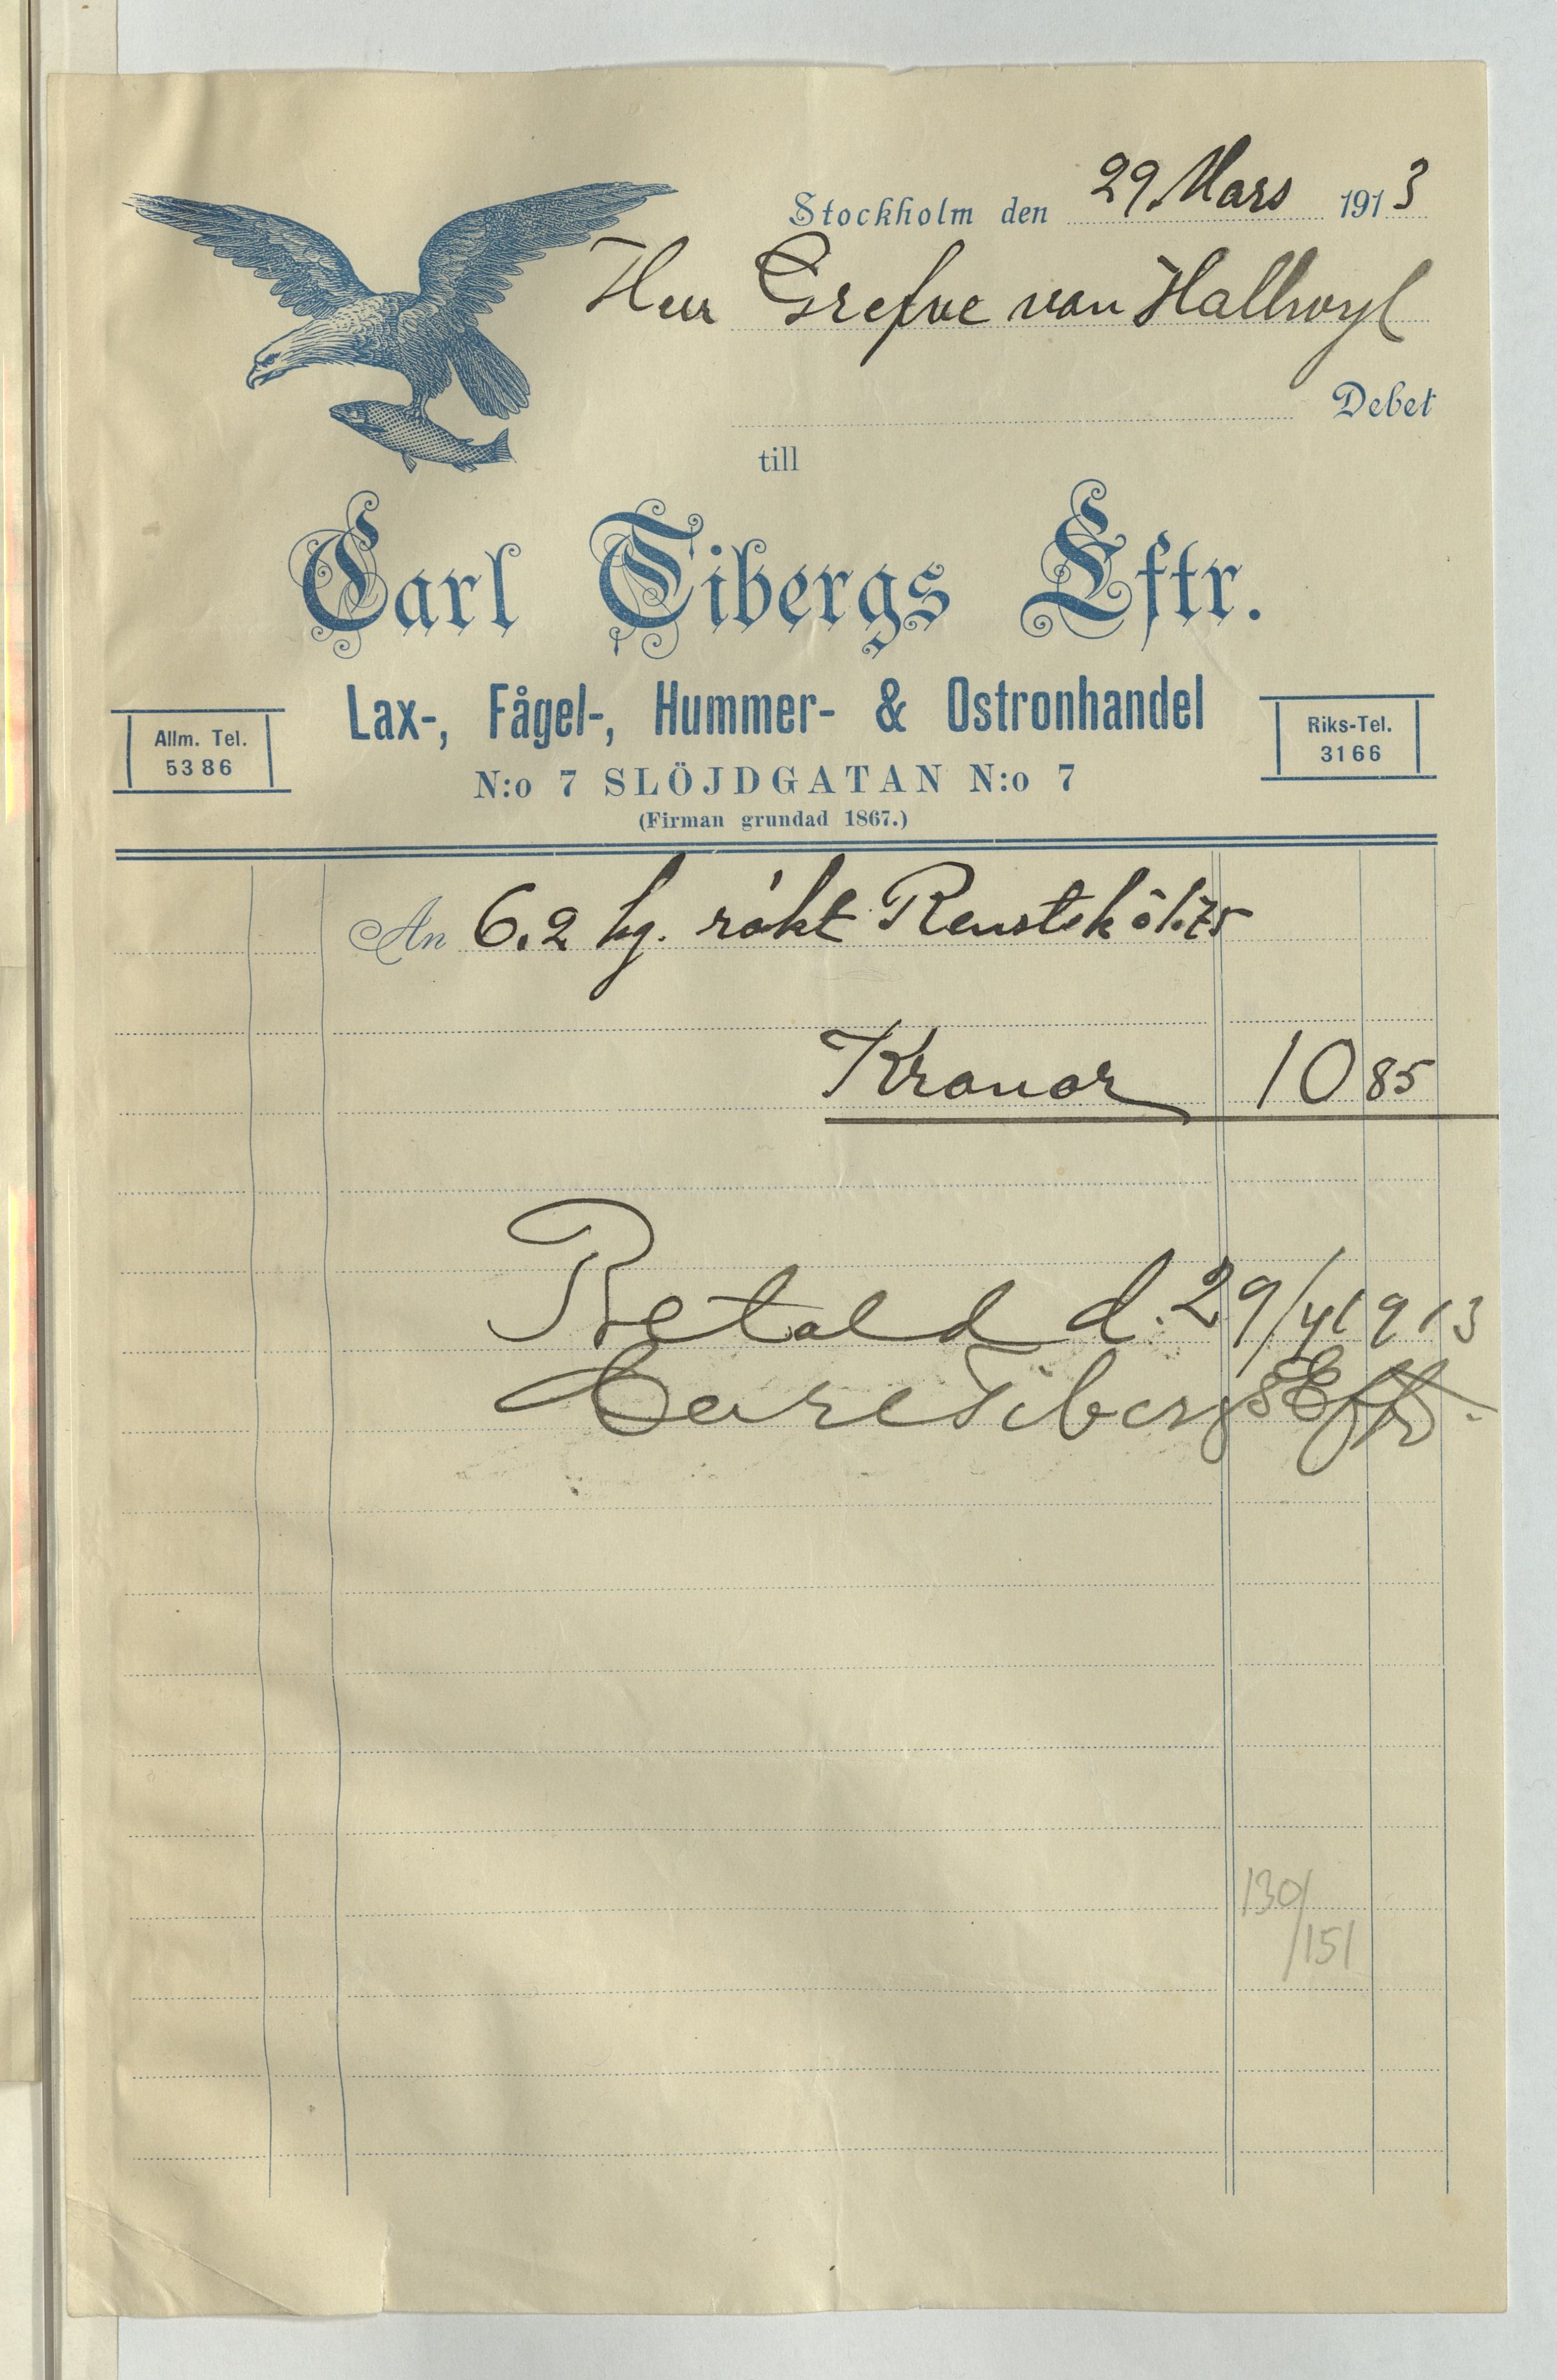 Stockholm den 29 Mars 1913
Herr Grefve von Hallwyl
Debet
till
Carl Tibergs Eftr.
Lax-, Fågel-, Hummer- & Ostronhandel
Allm. Tel.
5386
Riks-Tel.
3166
N:o 7 SLÖJDGATAN N:o 7
(Firman grundad 1867.)
An 6.2 kg. rökt Renstek à 1.75
Kronor 10 85
Betald d. 29/4 1913
Carl Tibergs Eftr.
130/
/151